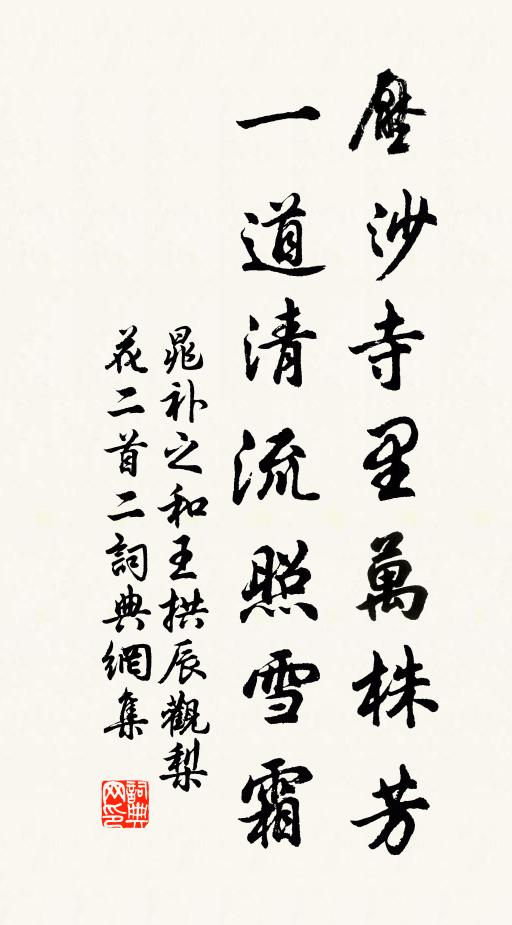 壓沙寺里萬株芳
一道清流照雪霜
晁补之和王拱辰觀梨
花二首二詞典網集
詞典网印